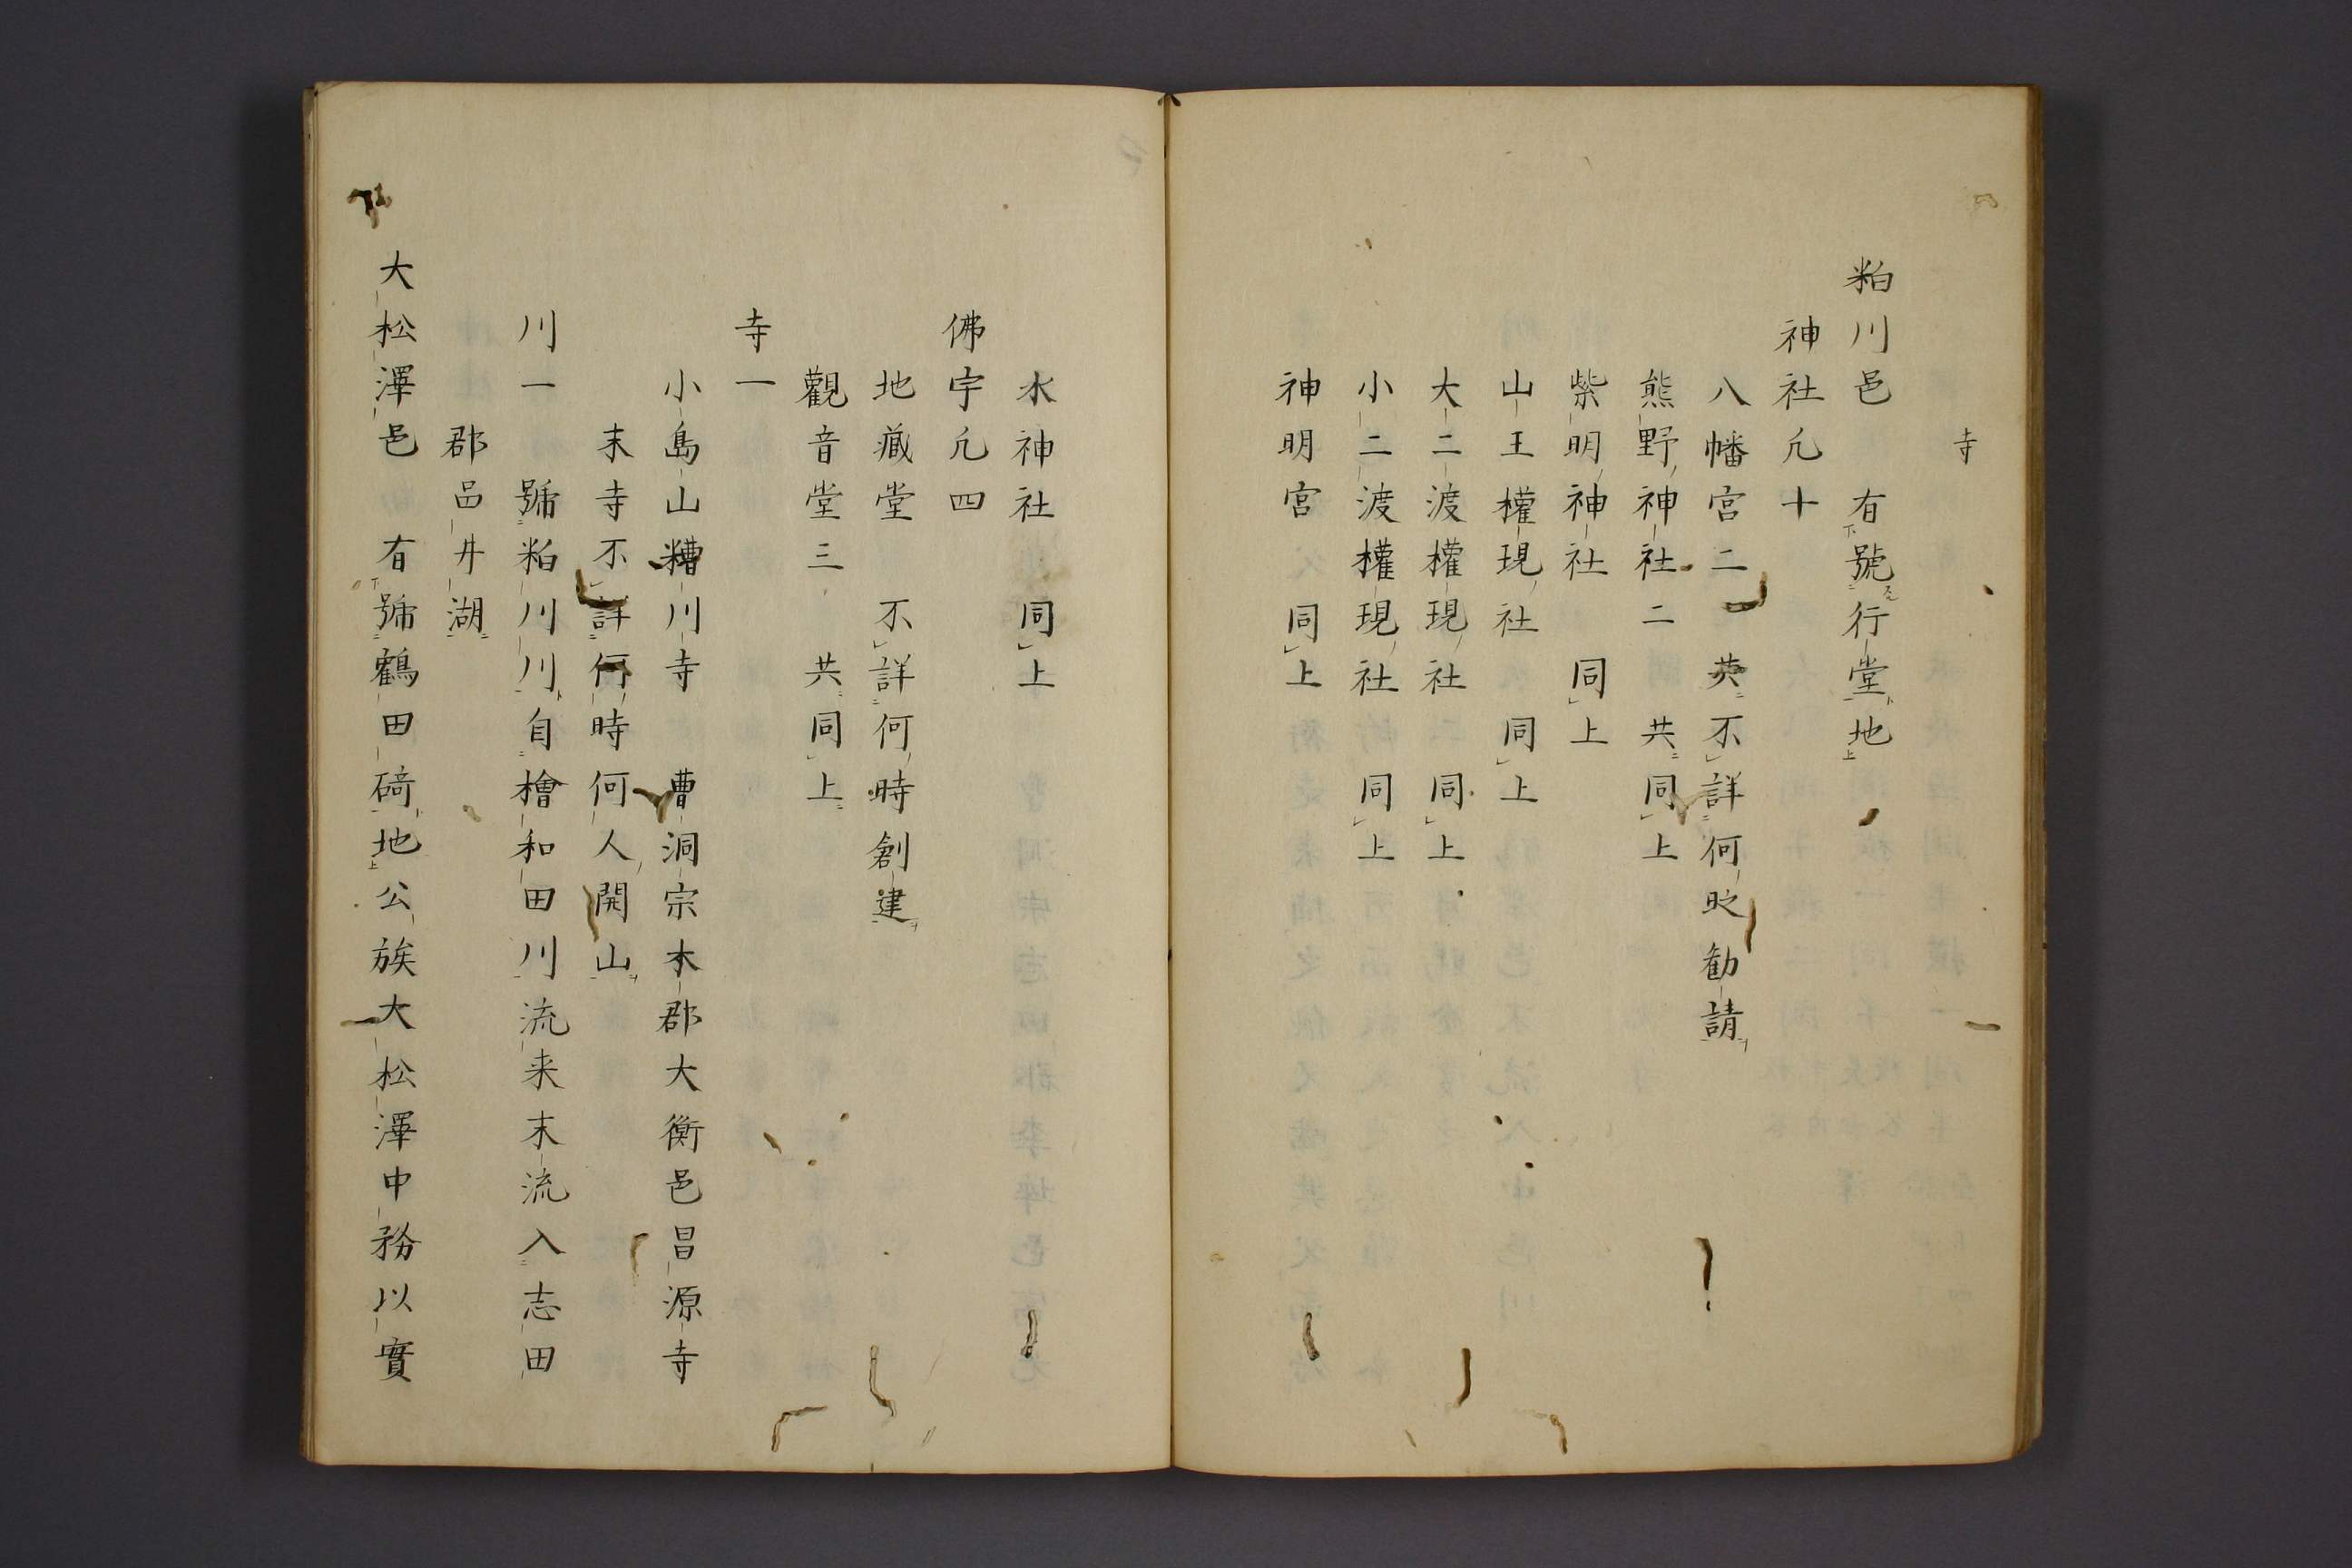 寺
粕川邑　有號行堂地
神社凢十
八幡宮二　共不詳何時勧請
熊野神社二　共同上
柴明神社　同上
山王權現社　同上
大二渡權現社　同上
小二渡權現社　同上
神明宮　同上
水神社　同上
佛宇凢四
地藏堂　不詳何時創建
觀音堂三　共同上
寺一
小島山糟川寺　曹洞宗本郡大衡邑昌源寺
末寺不詳何時何人開山
川一　號粕川川自檜和田川流来末流入志田
郡品井湖
大松澤邑　有號鶴田碕地公族大松澤中務以實